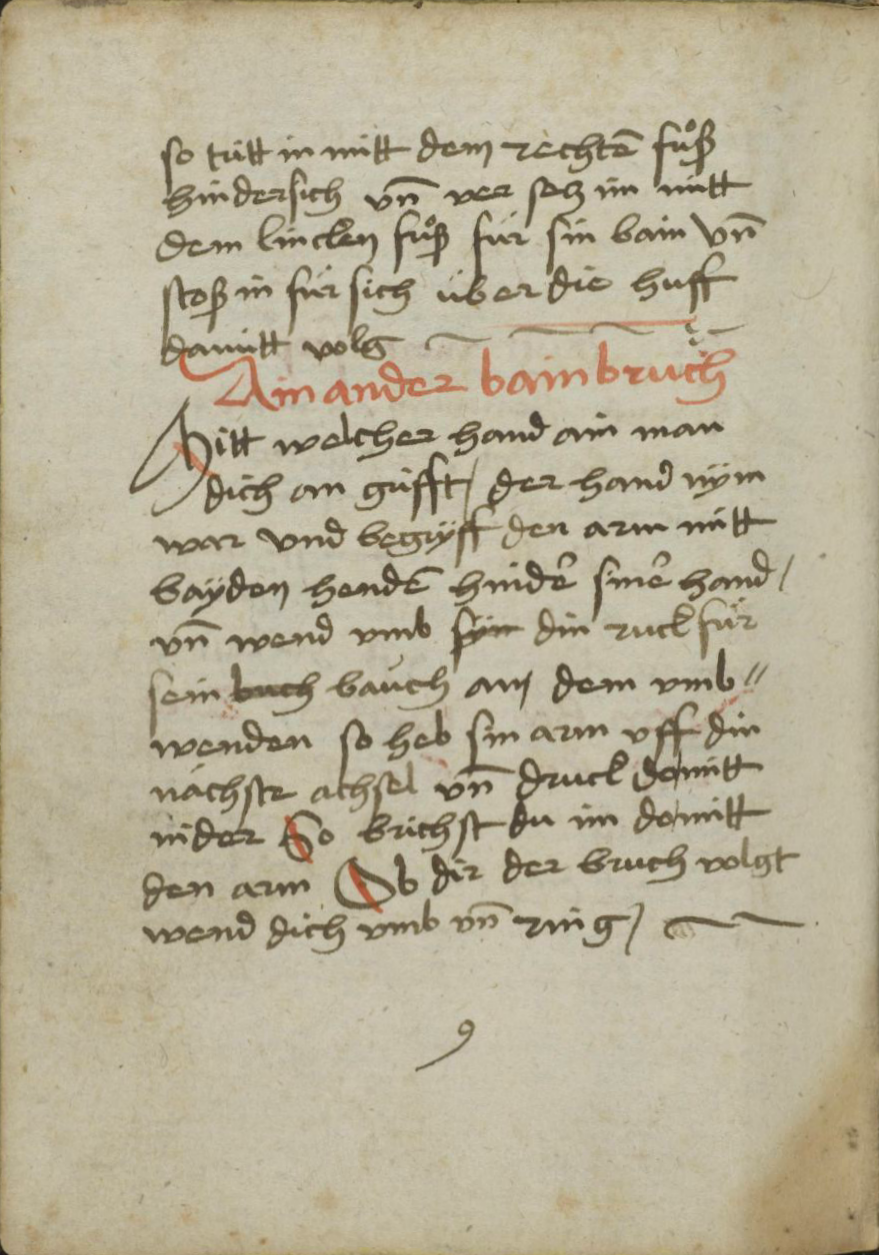 so tritt in mitt dem rechtē fuͦß
hindersich vn̄ ver setz im mitt
dem lincken fuͦß für sin bain vn̄
stoß in für sich über die huff
damitt volg
Ain ander bain bruch
Mitt welcher hand ain man
dich an grifft / der hand nÿm
war vnd begrÿff den arm mitt
bayden hendē hinder siner hand /
vn̄ wend vmb syn din ruck für
sein buch bauch am dem vmb //
wenden so heb sin arm vff din
nächste achsel vn̄ druck domitt
nider So brichst du im domitt
den arm Ob dir der bruch volgt
wend dich vmb vn̄ ring /
9